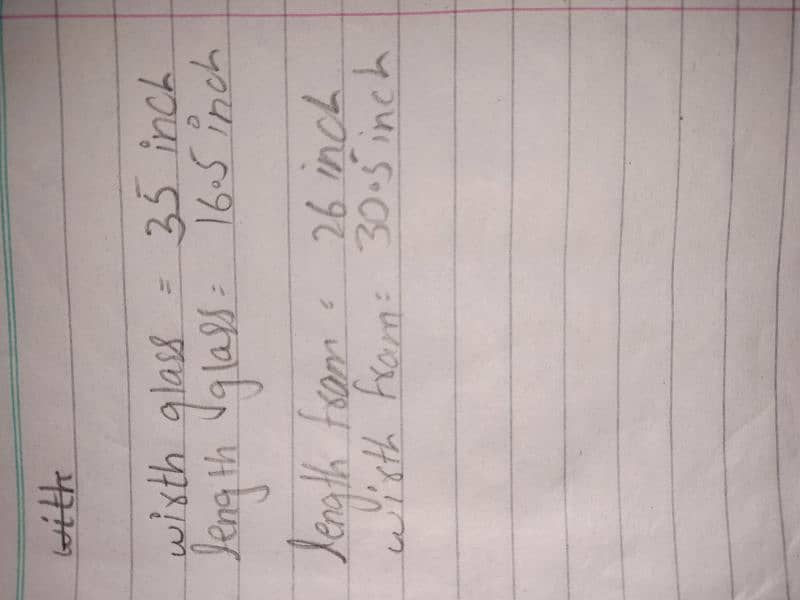 with
wirth glass = 35 inch
length glass = 16.5 inch
length fram = 26 inch
wirth fram = 30.5 inch